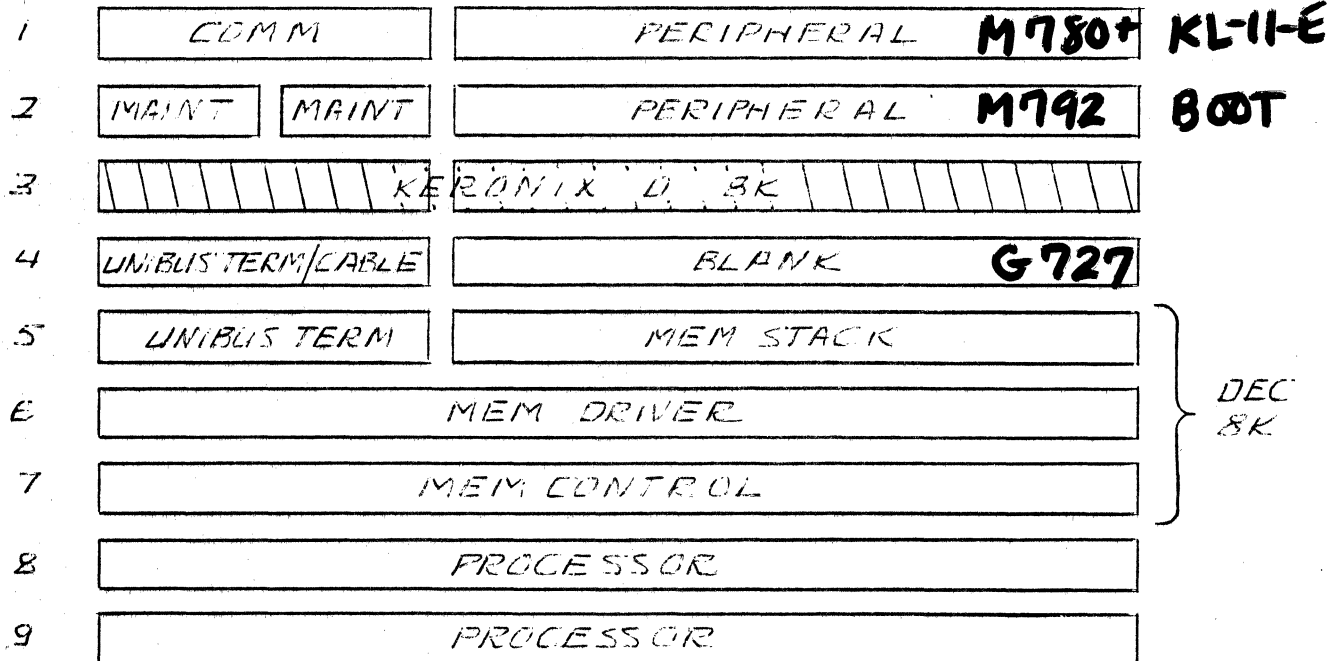 1 COMM PERIPHERAL M780+ KL-11-E
2 MAINT MAINT PERIPHERAL M792 BOOT
3 KERONIX D 8K
4 UNIBUS TERM/CABLE BLANK G727
5 UNIBUS TERM MEM STACK
6 MEM DRIVER
DEC
8K
7 MEM CONTROL
8 PROCESSOR
9 PROCESSOR